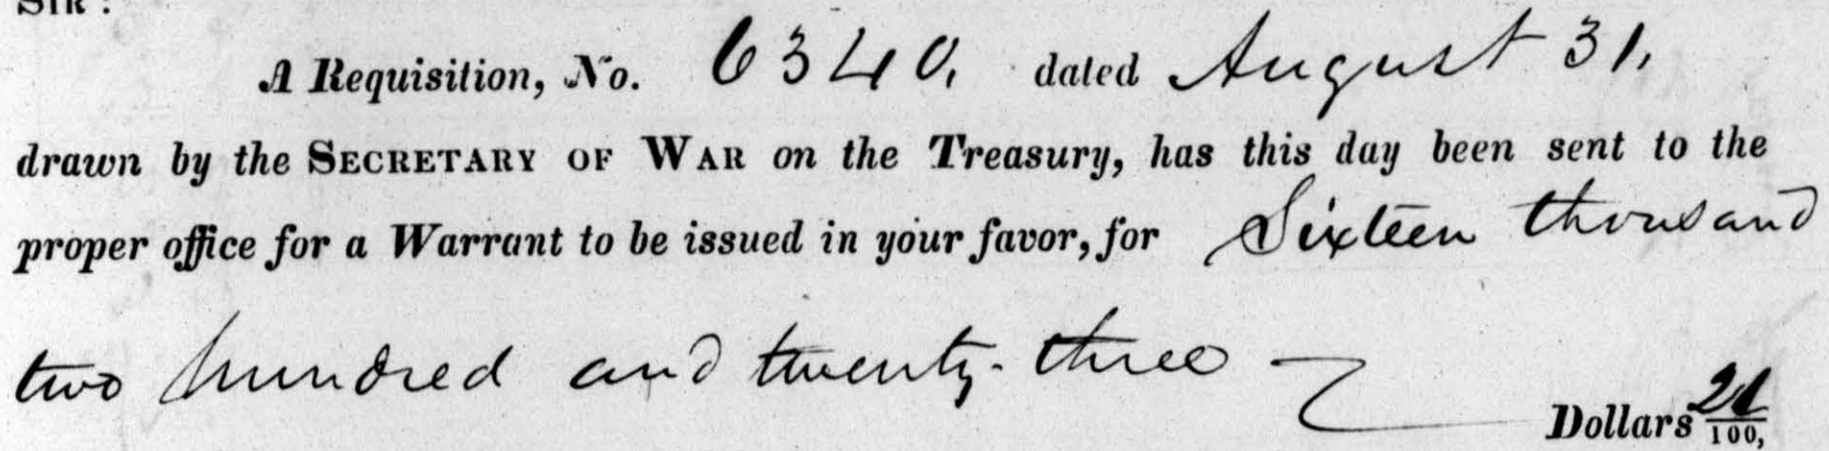 SIR:
A Requisition, No. 6340, dated August 31,
drawn by the SECRETARY OF WAR on the Treasury, has this day been sent to the
proper office for a Warrant to be issued in your favor, for Sixteen thousand
two hundred and twenty-three
Dollars 21/100,